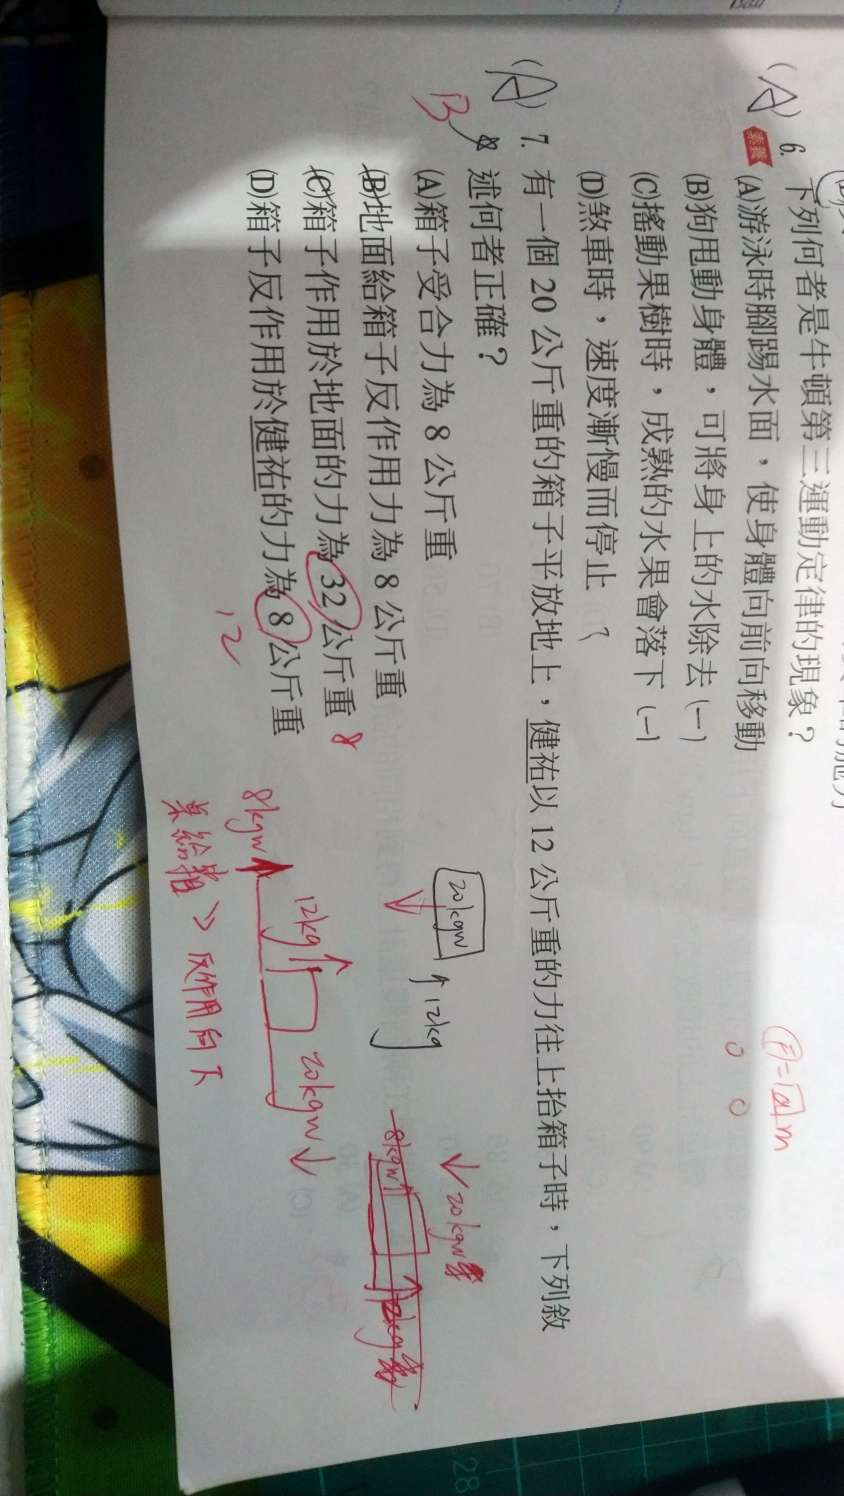 (A) 6. 下列何者是牛頓第三運動定律的現象？
素養 (A)游泳時腳踢水面，使身體向前向移動
(B)狗甩動身體，可將身上的水除去 (一)
(C)搖動果樹時，成熟的水果會落下 (一)
(D)煞車時，速度漸慢而停止
(A) 7. 有一個 20 公斤重的箱子平放地上，健祐以 12 公斤重的力往上抬箱子時，下列敘
B 述何者正確？
(A)箱子受合力為 8 公斤重
(B)地面給箱子反作用力為 8 公斤重
(C)箱子作用於地面的力為 32 公斤重 8
(D)箱子反作用於健祐的力為 8 公斤重
12
F = a m
0 0
20kgw
↑12kg
↓20kgw
8kgw↑
12kg
8kgw
12kg↑
20kgw↓
反作用向下
28